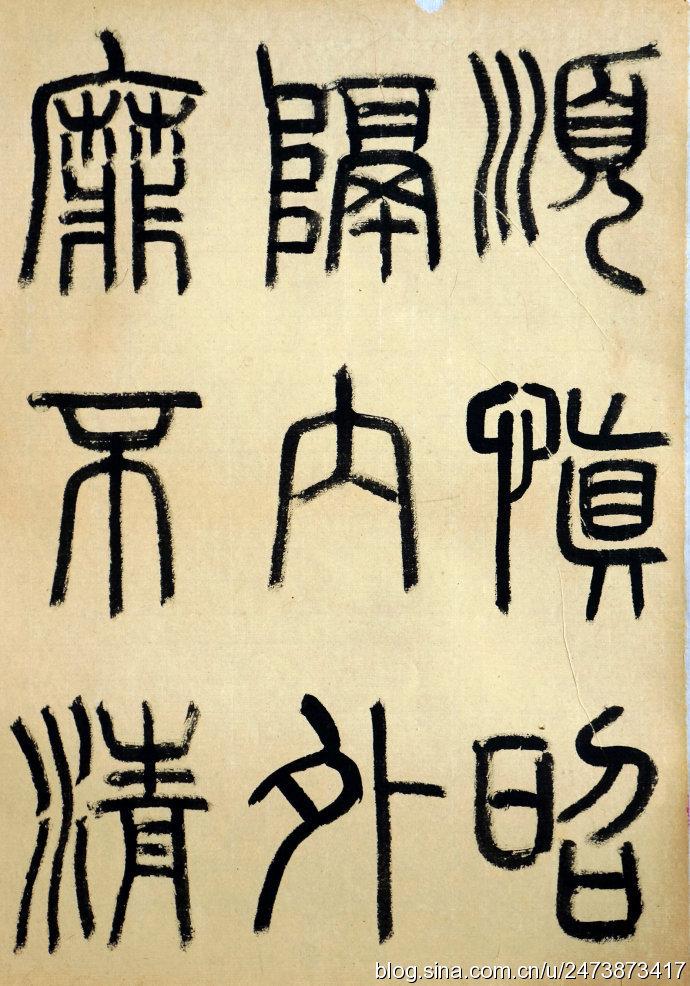 順慎昭
隔内外
靡不清
blog.sina.com.cn/u/2473873417